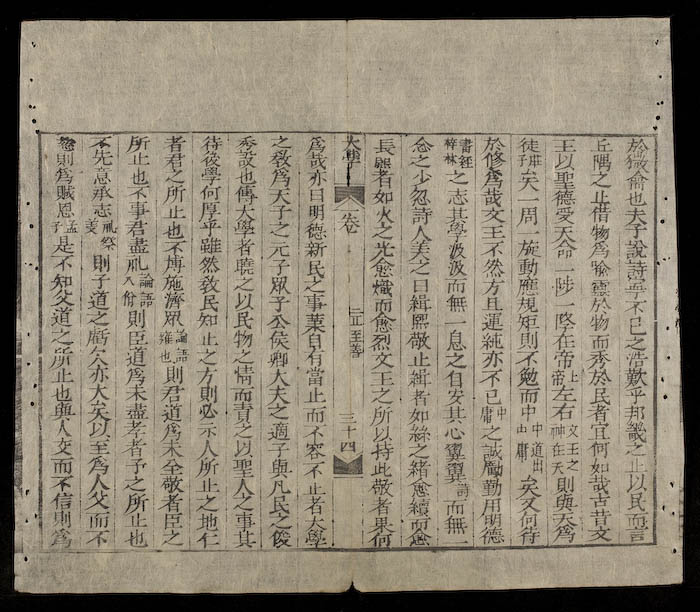 也夫子說詩寧不已之浩歎乎邦畿之止以民而言
丘隅之止借物爲喩靈於物而秀於民者宜何如哉古昔文
王以聖德受天命一陟一降在帝左右文王之神在天則與天爲
徒莊子矣一周一旋動應規矩則不勉而中中道出中庸矣又何待
於修爲哉文王不然方且運純亦不已中庸之誠勵勤用明德
書經梓材之志其學汲汲而無一息之自安其心翼翼詩而無一
念之少忽詩人美之曰緝熙敬止緝者如絲之緒愈續而愈
長熙者如火之光愈熾而愈烈文王之所以持此敬者果何
大學 卷 三止至善 三十四
爲哉亦曰明德新民之事業自有當止而不容不止者大學
之敎爲天子之元子眾子公侯卿大夫之適子與凡民之俊
秀設也傳大學者曉之以民物之情而責之以聖人之事其
待後學何厚乎雖然敎民知止之方則必示人所止之地仁
者君之所止也不博施濟眾論語雍也則君道爲未至敬者臣之
所止也不事君盡礼論語八佾則臣道爲未盡孝者子之所止也
不先意承志礼祭義則子道之虧欠亦大矣以至爲人父而不
慈則爲賊恩孟子是不知父道之所止也與人交而不信則爲